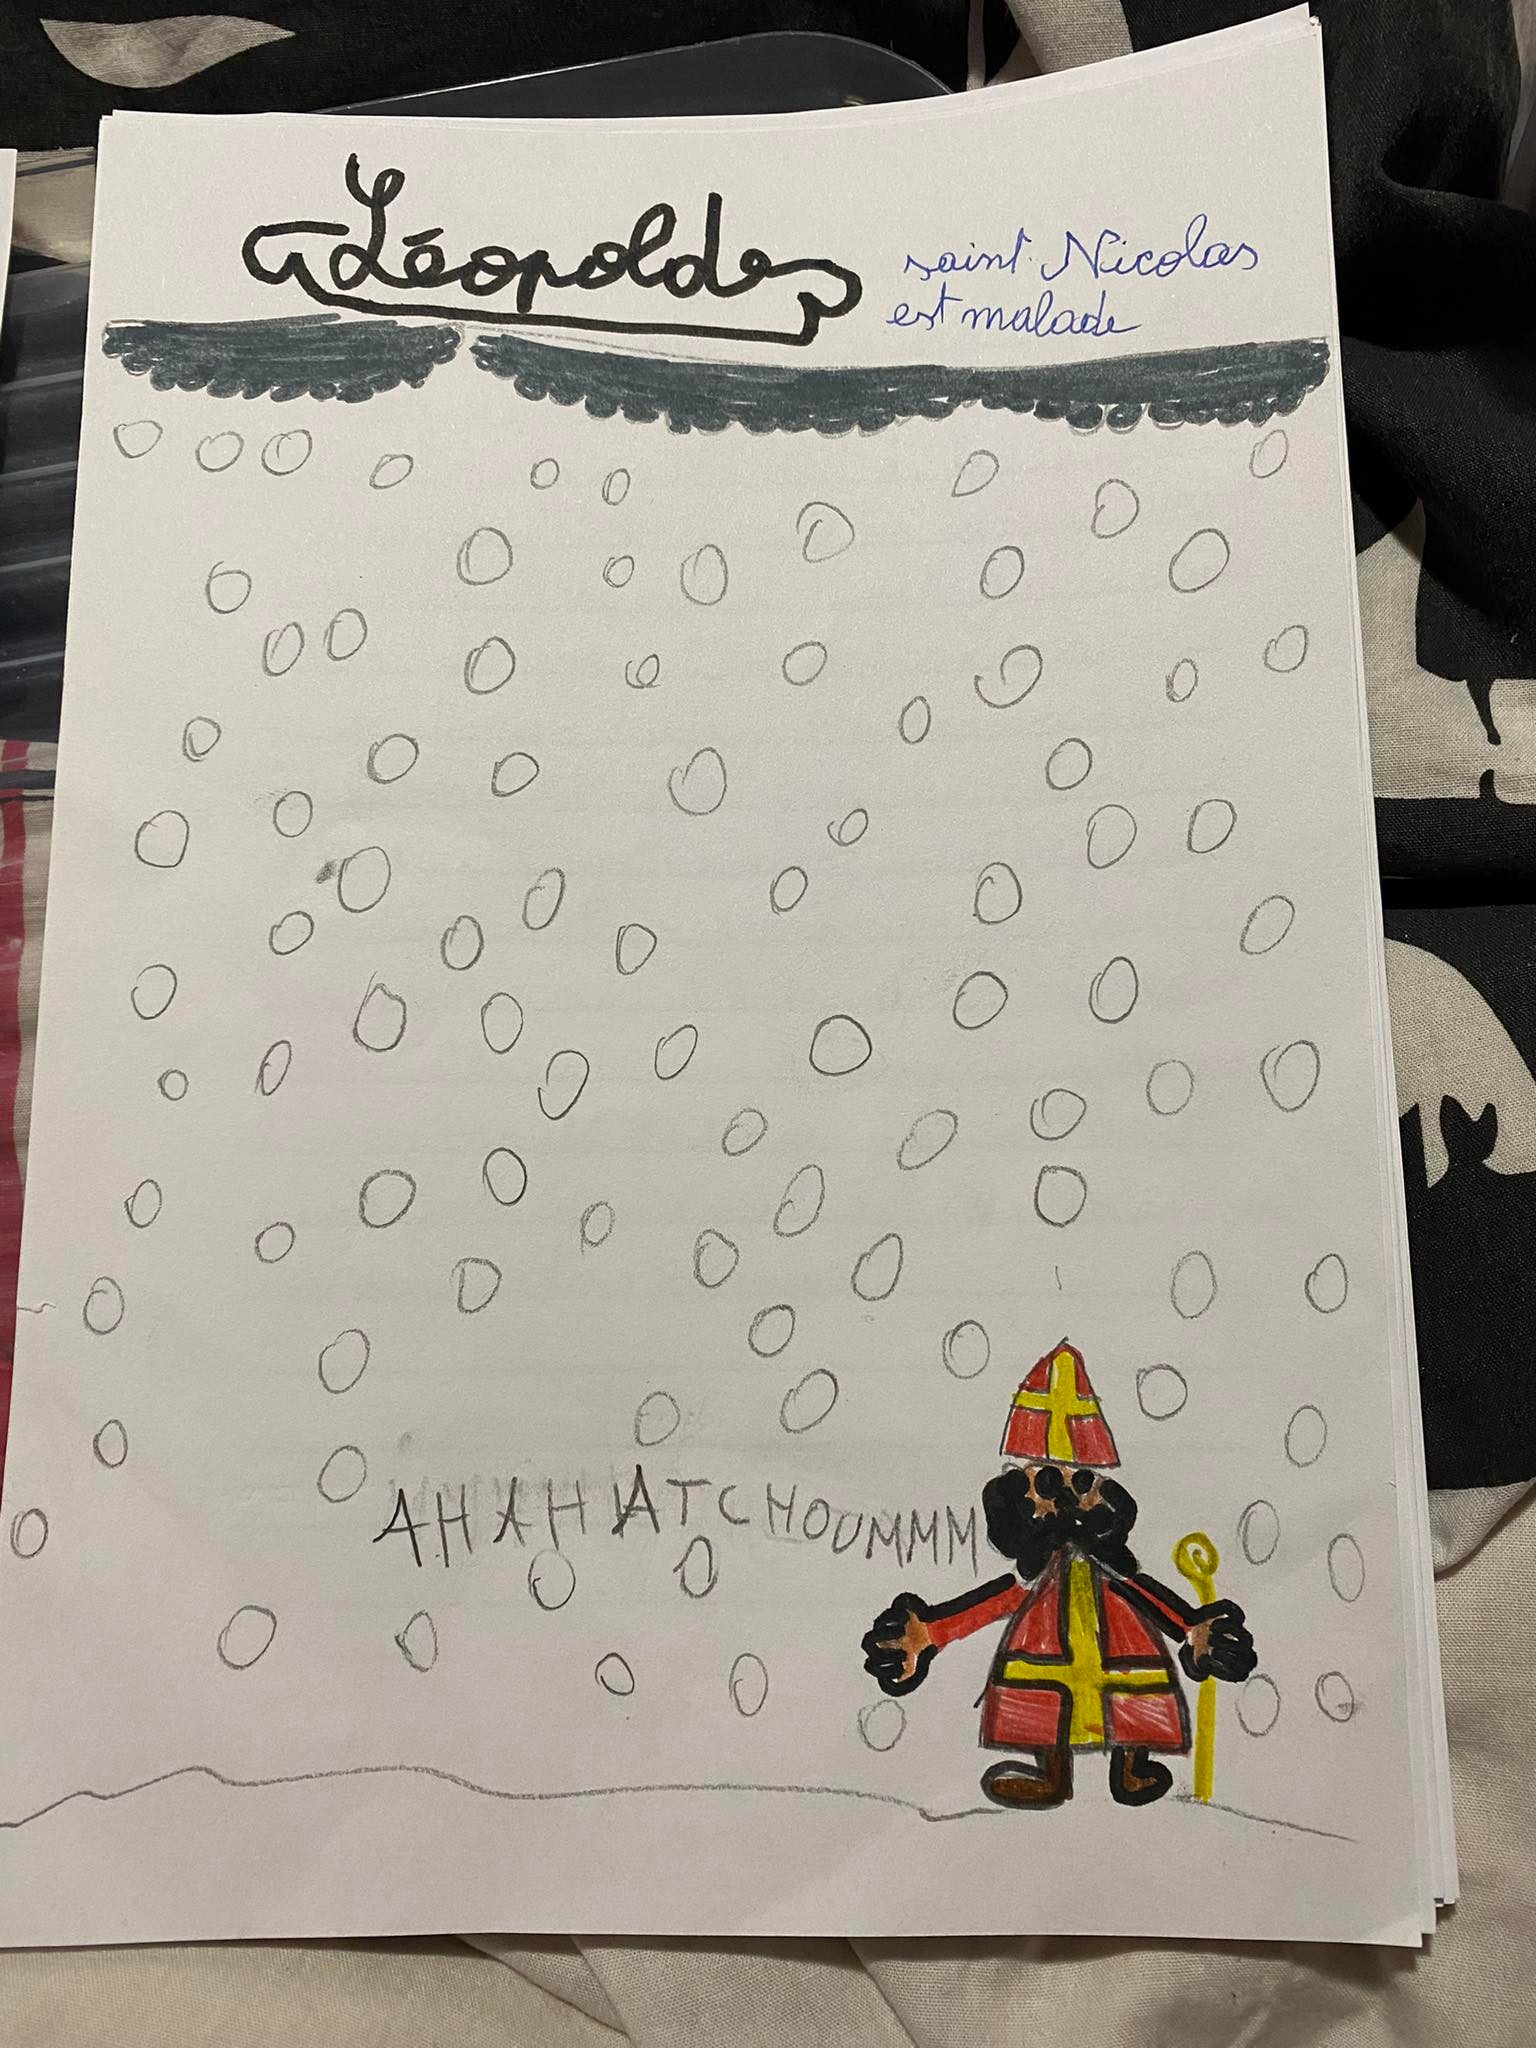 Léopold
saint Nicolas
est malade
AHAHATCHOUMMM